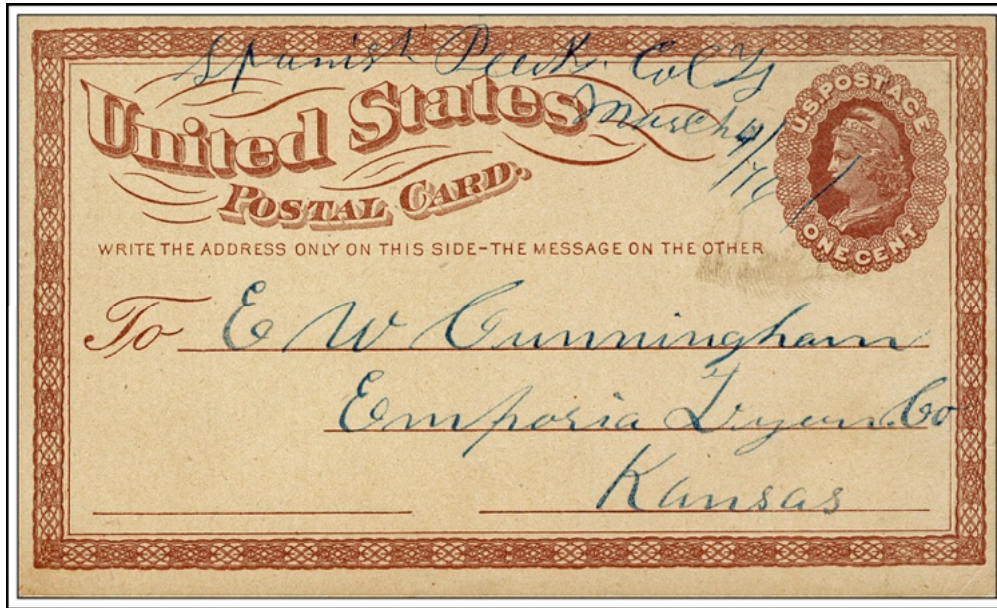 Spanish Peak. Col Ty
March 4/
/76
United States
POSTAL CARD.
U.S. POSTAGE
ONE CENT
WRITE THE ADDRESS ONLY ON THIS SIDE-THE MESSAGE ON THE OTHER
To E W Cunningham
Emporia Lyon Co
Kansas